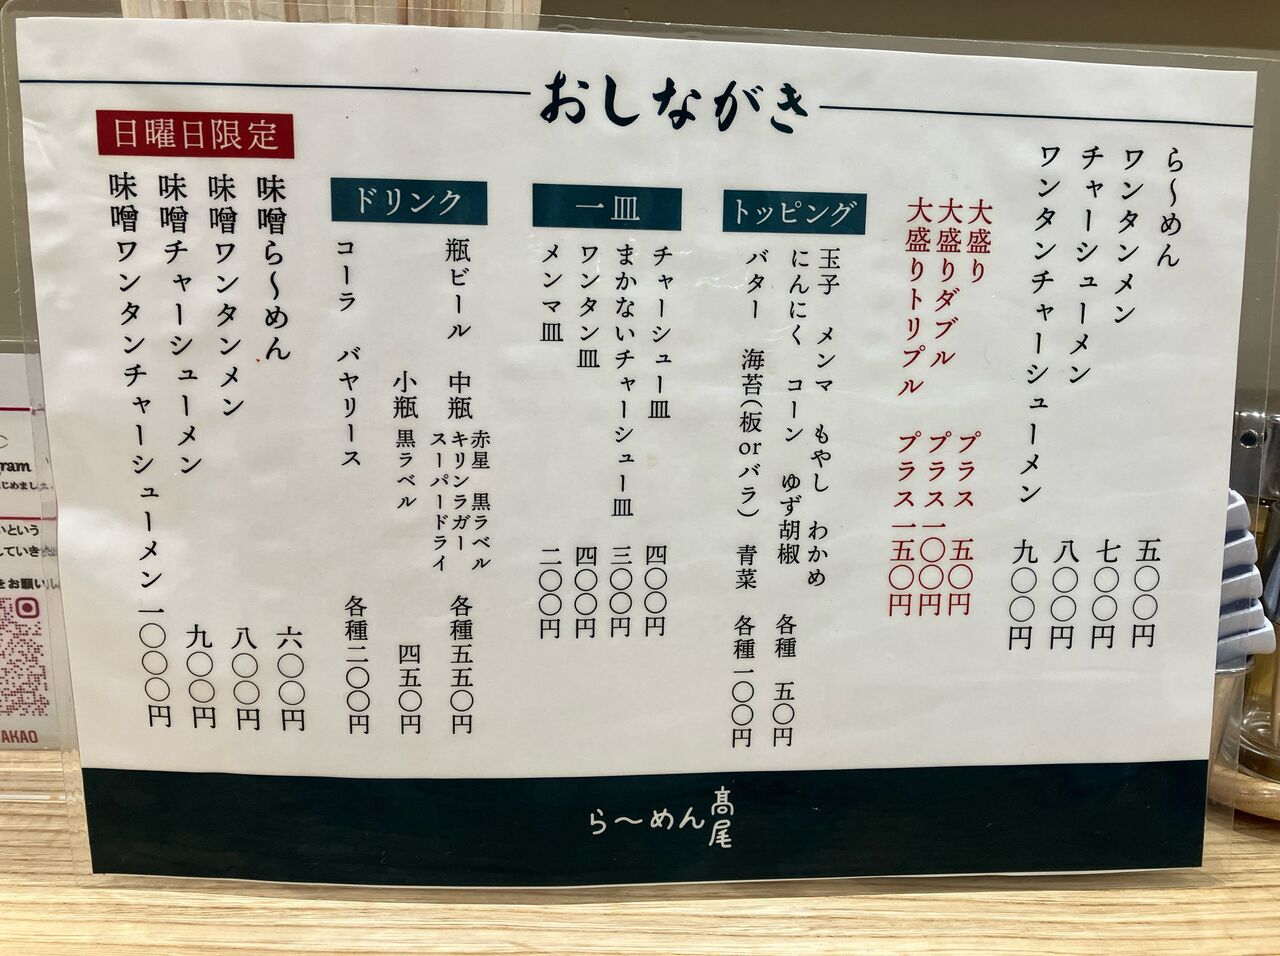 おしながき
ら〜めん 五〇〇円
ワンタンメン 七〇〇円
チャーシューメン 八〇〇円
ワンタンチャーシューメン 九〇〇円
大盛り プラス 五〇円
大盛りダブル プラス一〇〇円
大盛りトリプル プラス一五〇円
トッピング
玉子 メンマ もやし わかめ
にんにく コーン ゆず胡椒 各種 五〇円
バター 海苔(板orバラ) 青菜 各種一〇〇円
一皿
チャーシュー皿 四〇〇円
まかないチャーシュー皿 三〇〇円
ワンタン皿 四〇〇円
メンマ皿 二〇〇円
ドリンク
瓶ビール 中瓶 赤星 黒ラベル
キリンラガー
スーパードライ 各種五五〇円
小瓶 黒ラベル 四五〇円
コーラ バヤリース 各種二〇〇円
日曜日限定
味噌ら〜めん 六〇〇円
味噌ワンタンメン 八〇〇円
味噌チャーシューメン 九〇〇円
味噌ワンタンチャーシューメン 一〇〇〇円
ら〜めん髙尾
gram
じめまし
いという
していき
をお願いし
AKAO